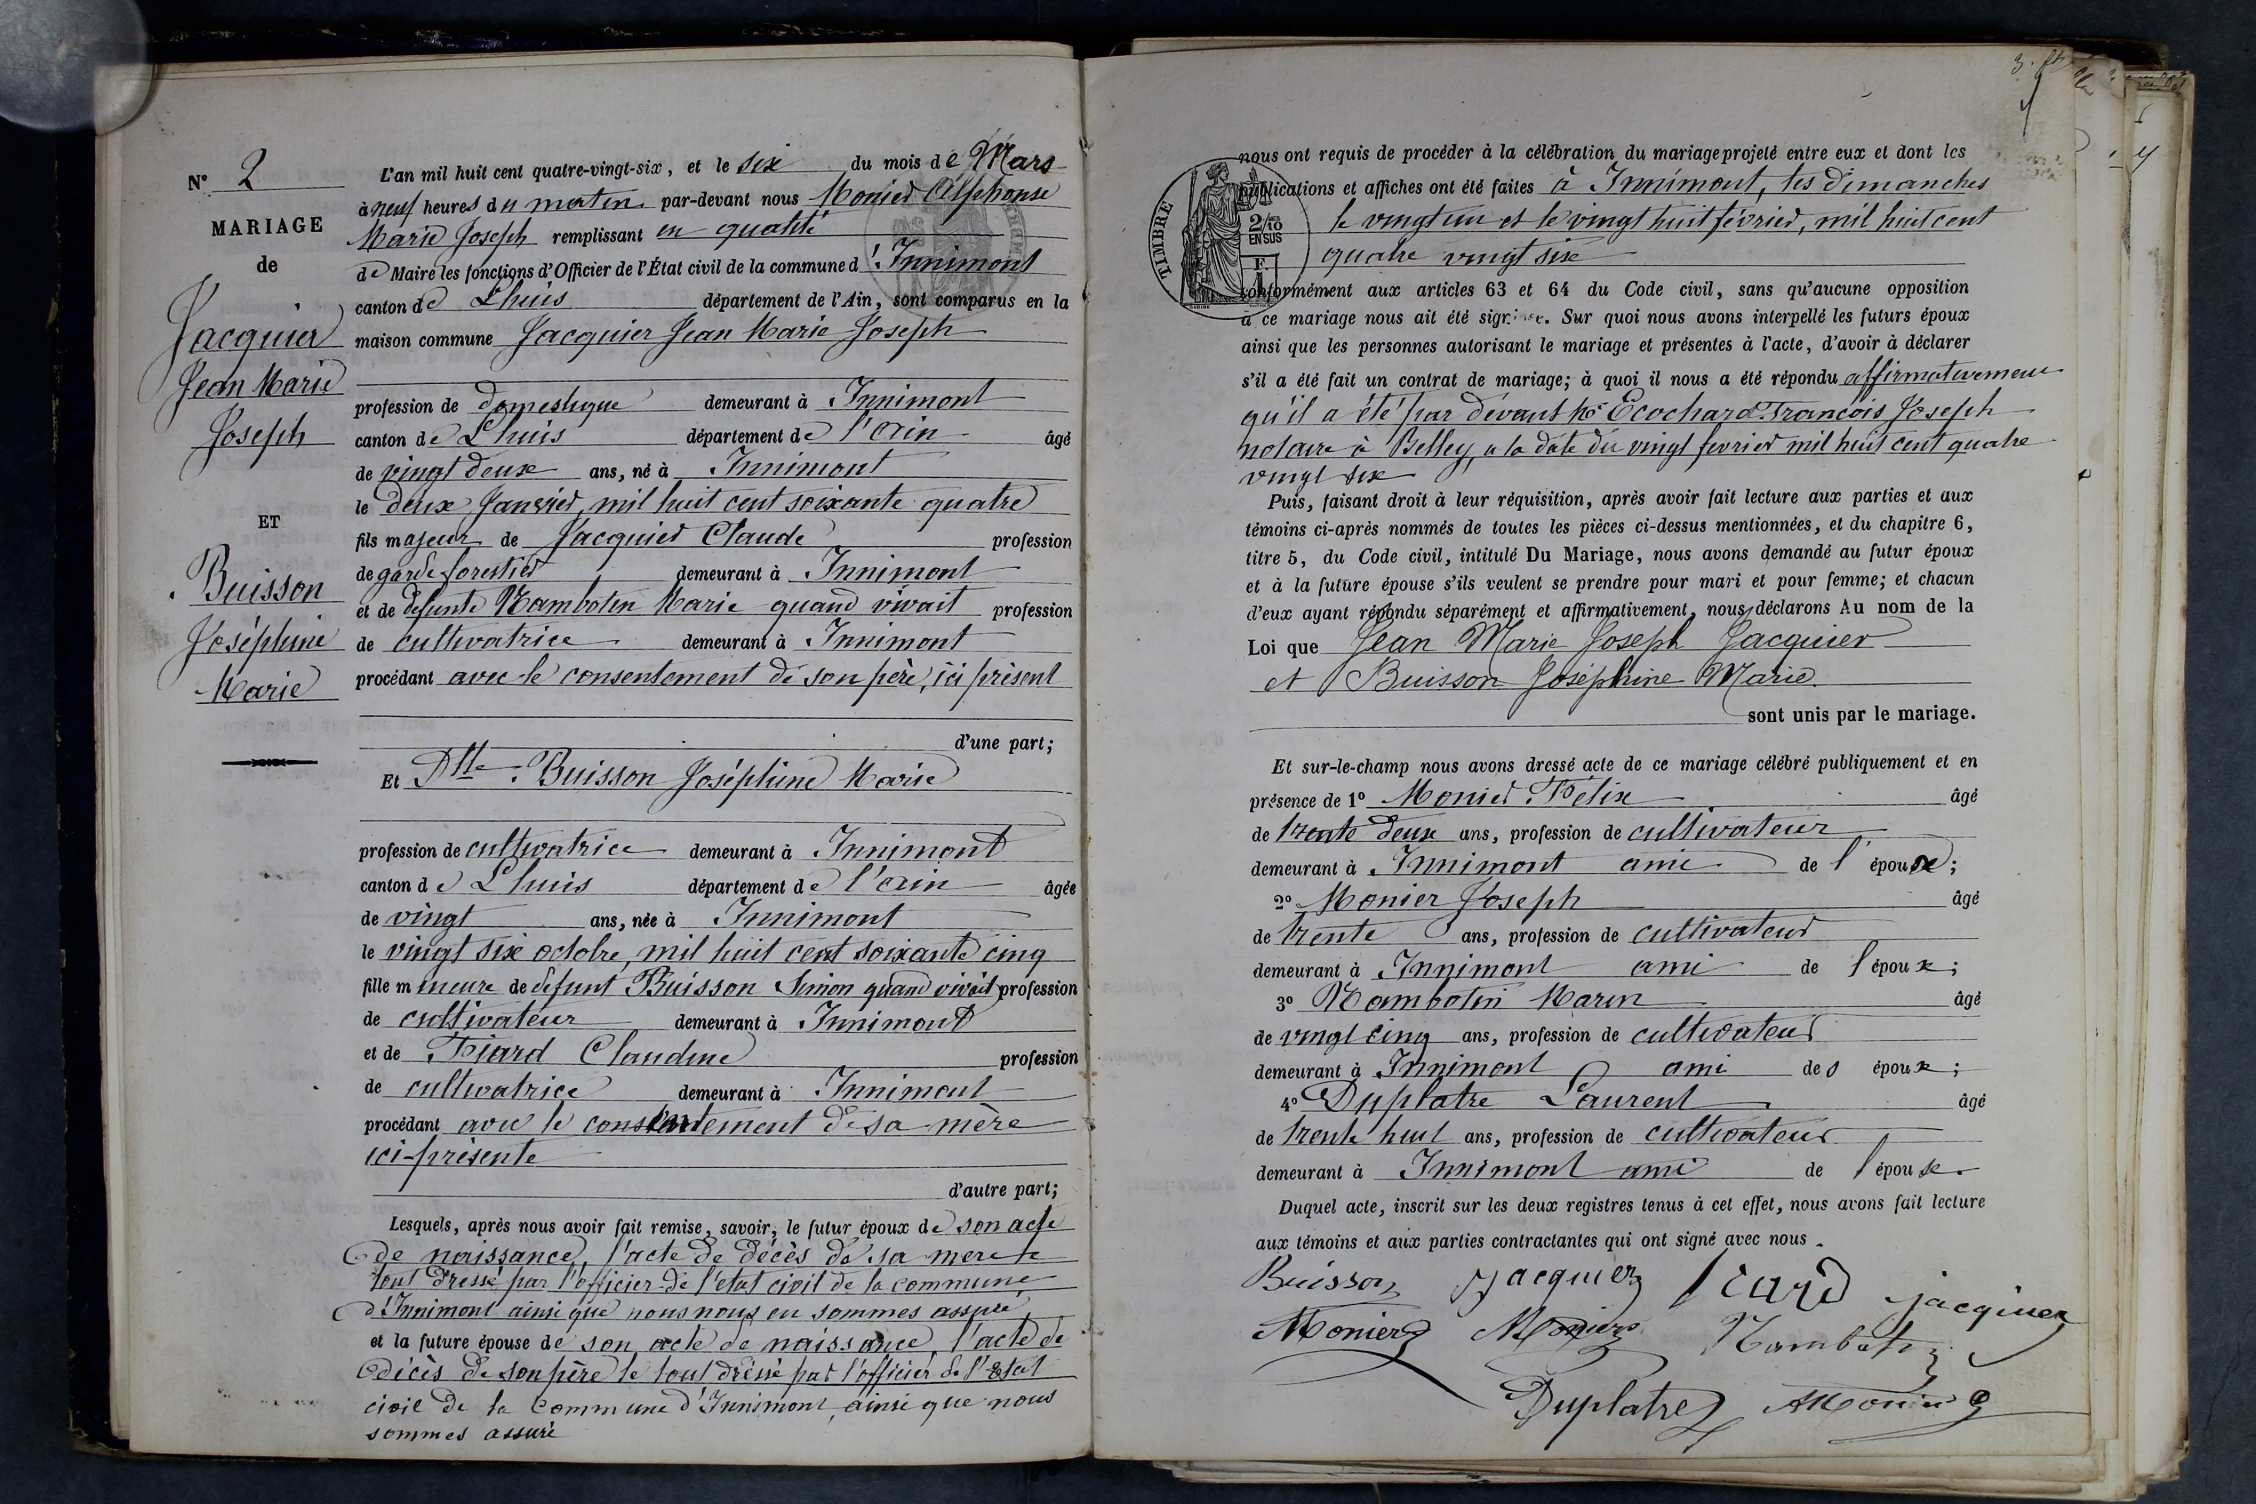 N° 2
MARIAGE
de
Jacquier
Jean Marie
Joseph
ET
Buisson
Joséphine
Marie
L'an mil huit cent quatre-vingt-six, et le six du mois de Mars
à neuf heures du matin par-devant nous Monier Alphonse
Marie Joseph remplissant en qualité
de Maire les fonctions d'Officier de l'État civil de la commune d'Innimont
canton de Lhuis département de l'Ain, sont comparus en la
maison commune Jacquier Jean Marie Joseph
profession de domestique demeurant à Innimont
canton de Lhuis département de l'ain âgé
de vingt deux ans, né à Innimont
le deux Janvier, mil huit cent soixante quatre
fils majeur de Jacquier Claude profession
de garde forestier demeurant à Innimont
et de défunte Nambotin Marie quand vivait profession
de cultivatrice demeurant à Innimont
procédant avec le consentement de son père, ici présent
d'une part;
Et Dlle Buisson Joséphine Marie
profession de cultivatrice demeurant à Innimont
canton de Lhuis département de l'ain âgée
de vingt ans, née à Innimont
le vingt six octobre, mil huit cent soixante cinq
fille mineure de défunt Buisson Simon quand vivait profession
de cultivateur demeurant à Innimont
et de Fiard Claudine profession
de cultivatrice demeurant à Innimont
procédant avec le consentement de sa mère
ici présente
d'autre part;
Lesquels, après nous avoir fait remise, savoir, le futur époux de son acte
de naissance, l'acte de décès de sa mère le
tout dressé par l'officier de l'état civil de la commune
d'Innimont ainsi que nous nous en sommes assuré
et la future épouse de son acte de naissance, l'acte de
décès de son père le tout dréssé par l'officier de l'état
civil de la commune d'Innimont, ainsi que nous
sommes assuré
TIMBRE
2/10
EN SUS
F.
1
nous ont requis de procéder à la célébration du mariage projeté entre eux et dont les
publications et affiches ont été faites à Innimont, les dimanches
le vingt un et le vingt huit février, mil huit cent
quatre vingt six
conformément aux articles 63 et 64 du Code civil, sans qu'aucune opposition
à ce mariage nous ait été signifiée. Sur quoi nous avons interpellé les futurs époux
ainsi que les personnes autorisant le mariage et présentes à l'acte, d'avoir à déclarer
s'il a été fait un contrat de mariage; à quoi il nous a été répondu affirmativement
qu'il a été par dévant Me Ecochard François Joseph
notaire à Belley, a la date du vingt fevrier mil huit cent quatre
vingt six
Puis, faisant droit à leur réquisition, après avoir fait lecture aux parties et aux
témoins ci-après nommés de toutes les pièces ci-dessus mentionnées, et du chapitre 6,
titre 5, du Code civil, intitulé Du Mariage, nous avons demandé au futur époux
et à la future épouse s'ils veulent se prendre pour mari et pour femme; et chacun
d'eux ayant répondu séparément et affirmativement, nous déclarons Au nom de la
Loi que Jean Marie Joseph Jacquier
et Buisson Joséphine Marie
sont unis par le mariage.
Et sur-le-champ nous avons dressé acte de ce mariage célébré publiquement et en
présence de 1° Monier Félix âgé
de trente deux ans, profession de cultivateur
demeurant à Innimont ami de l'épouse;
2° Monier Joseph âgé
de trente ans, profession de cultivateur
demeurant à Innimont ami de l'époux;
3° Nambotin Marin âgé
de vingt cinq ans, profession de cultivateur
demeurant à Innimont ami des époux;
4° Duplatre Laurent âgé
de trente huit ans, profession de cultivateur
demeurant à Innimont ami de l'épouse.
Duquel acte, inscrit sur les deux registres tenus à cet effet, nous avons fait lecture
aux témoins et aux parties contractantes qui ont signé avec nous.
Buisson Jacquier Fiard Jacquier
Monier Monier Nambotin
Duplatre AMonier